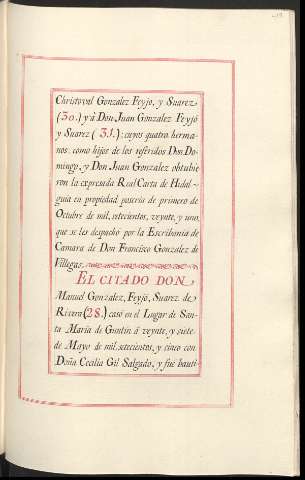 Christoval Gonzalez Feyjo, y Suarez
(30.) y á Don Juan Gonzalez Feyjó
y Suarez (31.): cuyos quatro herma-
nos, como hijos de los referidos Don Do-
mingo, y Don Juan Gonzalez obtubie
ron la expresada Real Carta de Hidal-
guia en propiedad posesria de primero de
Octubre de mil, setecientos, veynte, y uno,
que se les despachó por la Escribania de
Camara de Don Francisco Gonzalez de
Villegas.
EL CITADO DON
Manuel Gonzalez, Feyjó, Suarez de
Rivera (28.) casó en el Lugar de San-
ta Maria de Guntin á veynte, y siete
de Mayo de mil, setecientos, y cinco con
Doña Cecilia Gil Salgado, y fué bauti-